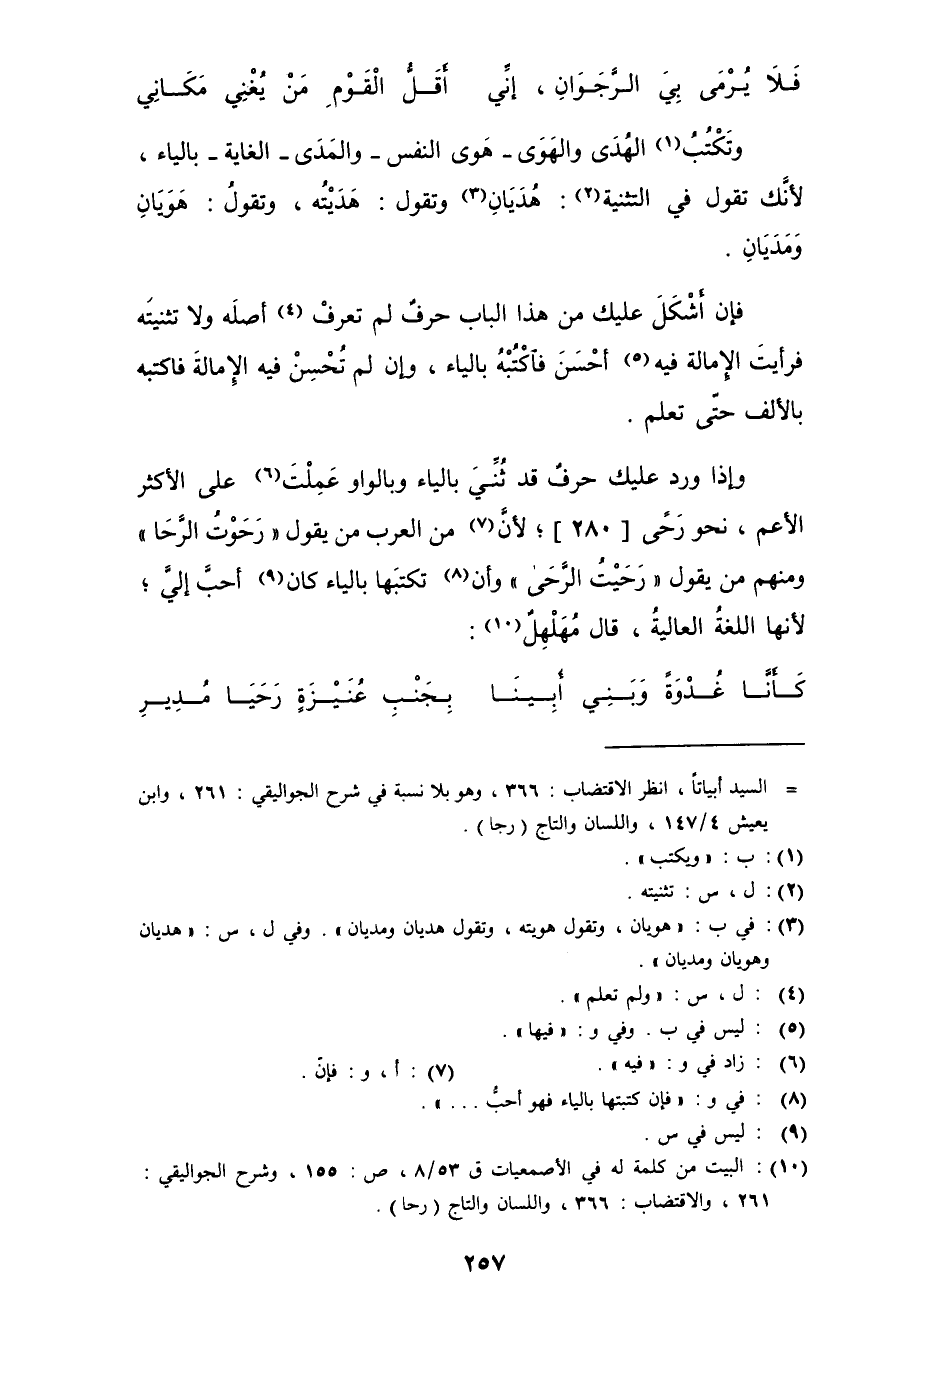 فَلَا يُرْمَى بِيَ الرَّجَوَانِ ، إنِّي أَقَلُّ الْقَوْمِ مَنْ يُغْنِي مَكَانِي
وتَكْتُبُ(١) الهُدَى والهَوَى ـ هَوى النفس ـ والمَدَى ـ الغاية ـ بالياء ،
لأنَّك تقول في التثنية(٢) : هُدَيَانِ(٣) وتقول : هَدَيْتُه ، وتقولُ : هَوَيَانِ
وَمَدَيَانِ .
فإن أَشْكَلَ عليك من هذا الباب حرفٌ لم تعرفْ (٤) أصلَه ولا تثنيتَه
فرأيتَ الإمالة فيه(٥) أحْسَنَ فَاَكْتُبْهُ بالياء ، وإن لم تُحْسِنْ فيه الإمالةَ فاكتبه
بالألف حتّى تعلم .
وإذا ورد عليك حرفٌ قد ثُنِّيَ بالياء وبالواو عَمِلْتَ(٦) على الأكثر
الأعم ، نحو رَحًى [ ٢٨٠ ] ؛ لأنَّ(٧) من العرب من يقول « رَحَوْتُ الرَّحَا »
ومنهم من يقول « رَحَيْتُ الرَّحَىٰ » وأن(٨) تكتبَها بالياء كان(٩) أحبَّ إليَّ ؛
لأنها اللغةُ العاليةُ ، قال مُهَلْهِلٌ(١٠) :
كَأَنَّا غُدْوَةً وَبَنِي أَبِينَا بِجَنْبِ عُنَيْزَةٍ رَحَيَا مُدِيرِ
= السيد أبياتاً ، انظر الاقتضاب : ٣٦٦ ، وهو بلا نسبة في شرح الجواليقي : ٢٦١ ، وابن
يعيش ١٤٧/٤ ، واللسان والتاج ( رجا ) .
(١) : ب : « ويكتب » .
(٢) : ل ، س : تثنيته .
(٣) : في ب : « هويان ، وتقول هويته ، وتقول هديان ومديان » . وفي ل ، س : « هديان
وهويان ومديان » .
(٤) : ل ، س : « ولم تعلم » .
(٥) : ليس في ب . وفي و : « فيها » .
(٦) : زاد في و : « فيه » . (٧) : أ ، و : فإنّ .
(٨) : في و : « فإن كتبتها بالياء فهو أحبُّ . . . » .
(٩) : ليس في س .
(١٠) : البيت من كلمة له في الأصمعيات ق ٨/٥٣ ، ص : ١٥٥ ، وشرح الجواليقي :
٢٦١ ، والاقتضاب : ٣٦٦ ، واللسان والتاج ( رحا ) .
٢٥٧